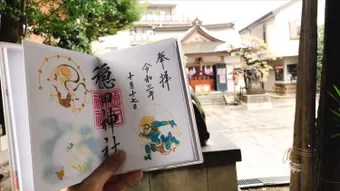 奉拝
令和三年
十月十七日
穏田神社